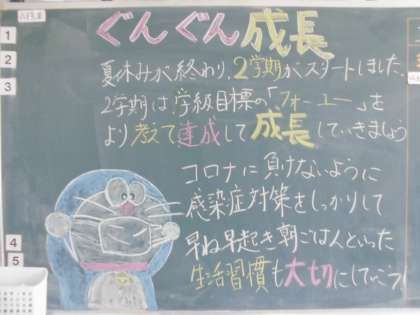 ぐんぐん成長
夏休みが終わり、2学期がスタートしました。
2学期は学級目標の「フォーユー」を
より考えて達成して成長していきましょう
コロナに負けないように
感染症対策をしっかりして
早ね早起き朝ごはんといった
生活習慣も大切にしていこう
1
2
3
4
5